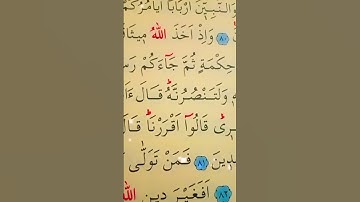 وَالنَّبِيّٖنَ اَرْبَابًا اَيَاْمُرُكُمْ
﴿٨٠﴾ وَاِذْ اَخَذَ اللّٰهُ مٖيثَاقَ
حِكْمَةٍ ثُمَّ جَٓاءَكُمْ رَسُ
وَلَتَنْصُرُنَّهُ قَالَ ءَ
رٖى قَالُٓوا اَقْرَرْنَا قَالَ
دٖينَ ﴿٨١﴾ فَمَنْ تَوَلّٰى
﴿٨٢﴾ اَفَغَيْرَ دٖينِ اللّٰهِ